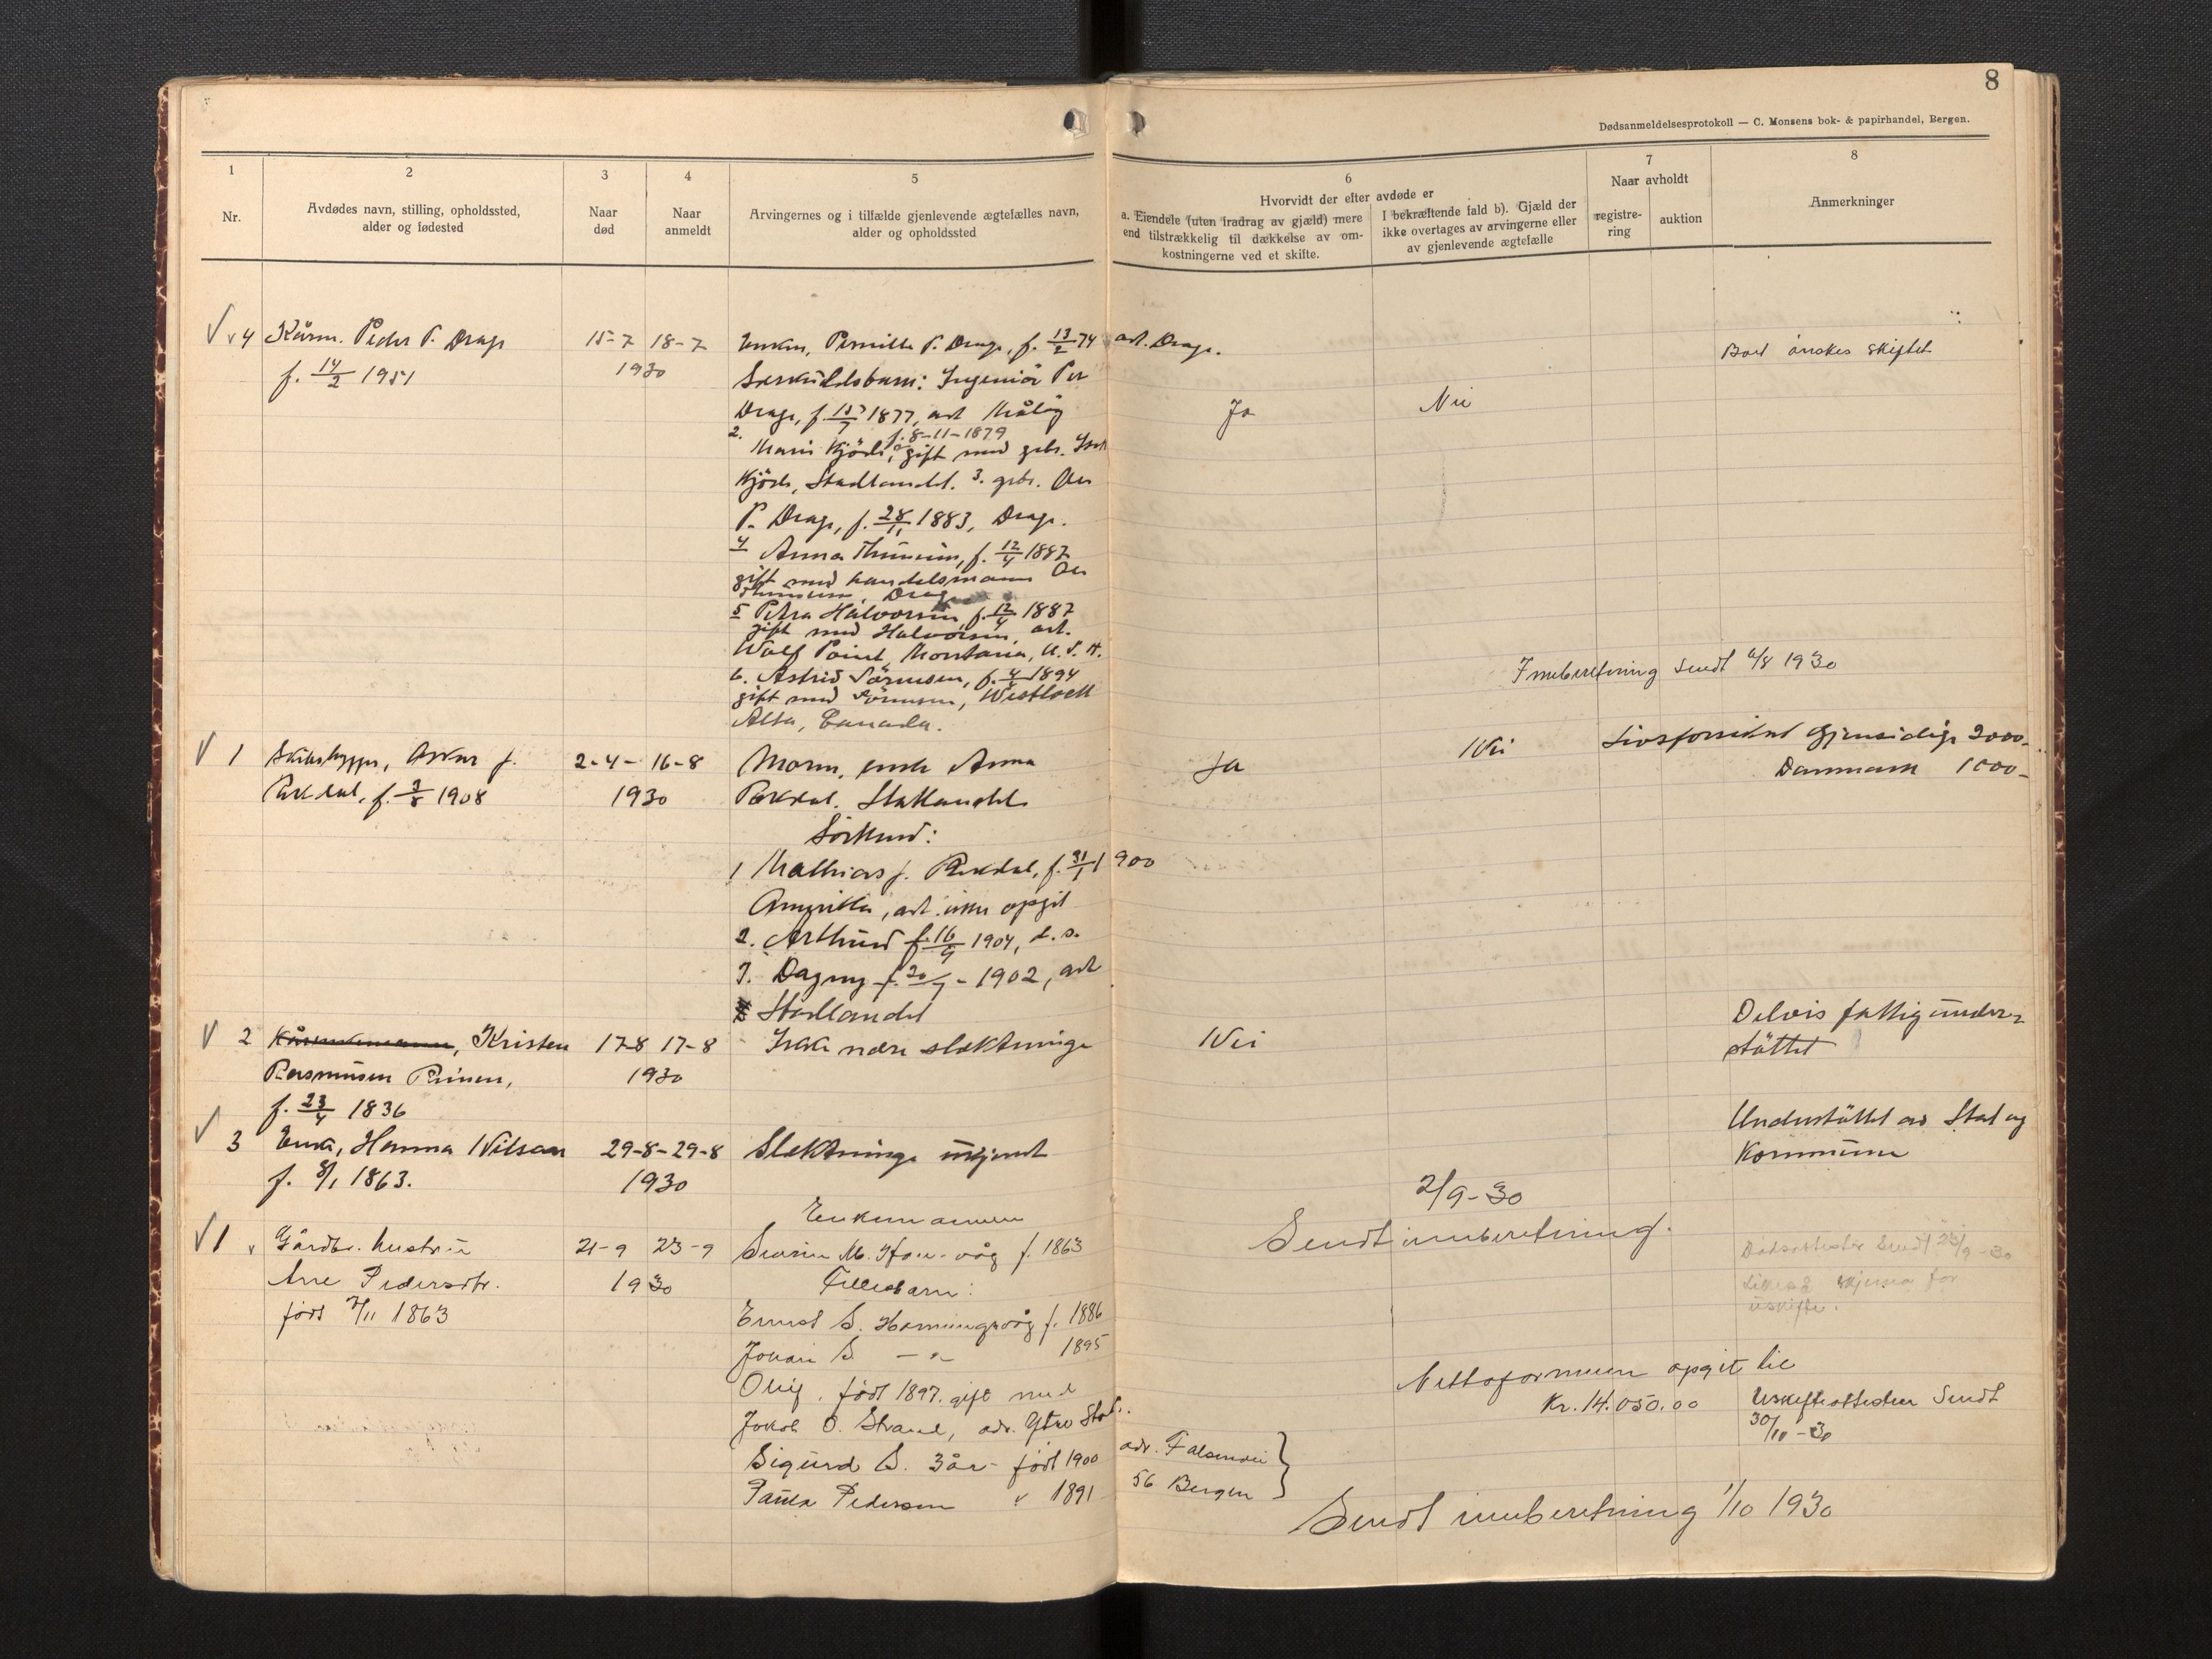 8
Dødsanmeldelsesprotokoll — C. Monsens bok- & papirhandel, Bergen.
1
Nr.
2
Avdødes navn, stilling, opholdssted,
alder og fødested
3
Naar
død
4
Naar
anmeldt
5
Arvingernes og i tilfælde gjenlevende ægtefælles navn,
alder og opholdssted
6
Hvorvidt der efter avdøde er
a. Eiendele (uten fradrag av gjæld) mere
end tilstrækkelig til dækkelse av om-
kostningerne ved et skifte.
I bekræftende fald b). Gjæld der
ikke overtages av arvingerne eller
av gjenlevende ægtefælle
7
Naar avholdt
registre-
ring
auktion
8
Anmerkninger
4 Kårm. Peder P. Drage
f. 14/2 1851
15-7 18-7
1930
Enken, Pernille P. Drage, f. 13/2 74 adr. Drage.
Særkuldsbarn: Ingeniör Per
Drage, f. 1877, adr Måløy
2. f. 8-11-1879
Marie Kjöde, gift med grbr.
Kjöde, Stadlandet. 3. grbr. Ole
P. Drage, f. 28/11 1883, Drage.
4 Anna Thunem, f. 12/4 1887
gift med handelsmann Ole
Thunem, Drage
5 Petra Halvorsen, f. 12/4 1887
gift med Halvorsen, adr.
Wolf Point, Montana, U.S.A.
6. Astrid Sörensen, f. 1894
gift med Sörensen, Westlock
Alta, Canada.
Ja
Nei
Boet önskes skiftet
Inneberetning sendt 6/8 1930
1
f. 1908
2-4- 16-8
1930
Moren, enke Anna
Stadlandet
Sösken:
1 Mathias J. f. 31/1 1900
Amerika, adr. ikke opgit
2. f. 16/9 1904, d. s.
3. Dagny f. 20/7 - 1902, adr
Stadlandet
Ja
Nei
Livsforsikret Gjensidige 2000-
Danmark 1000-
2 Kristen
Rasmusen
f. 23/4 1836
17-8 17-8
1930
Ikke nære slektninge
Nei
Delvis fattigunder-
støttet
3 Enke, Hanna Nilsen
f. 8/1 1863.
29-8-29-8
1930
Slektninge ukjent
Understøttet av Stat og
Kommune
2/9-30
Sendt inneberetning.
1 Gårdbr. hustru
Ane Pedersdtr.
født 7/11 1863
21-9 23-9
1930
Enkemannen
Severin M. f. 1863
Fellesbarn:
Ernst S. Honningsvåg f. 1886
Johan S. — " — 1895
Oliv. født 1897. gift med
Jakob O. Strand, adr. Ytre Stad.
Sigurd S. født 1900
Paula Pedersen " 1891
adr.
56 Bergen
Dødsattester sendt 23/9-30
Likeså skjema for
uskifte.
Nettoformuen opgit til
Kr. 14.050.00
Uskifteattesten Sendt
30/10-30
Sendt inneberetning 1/10 1930